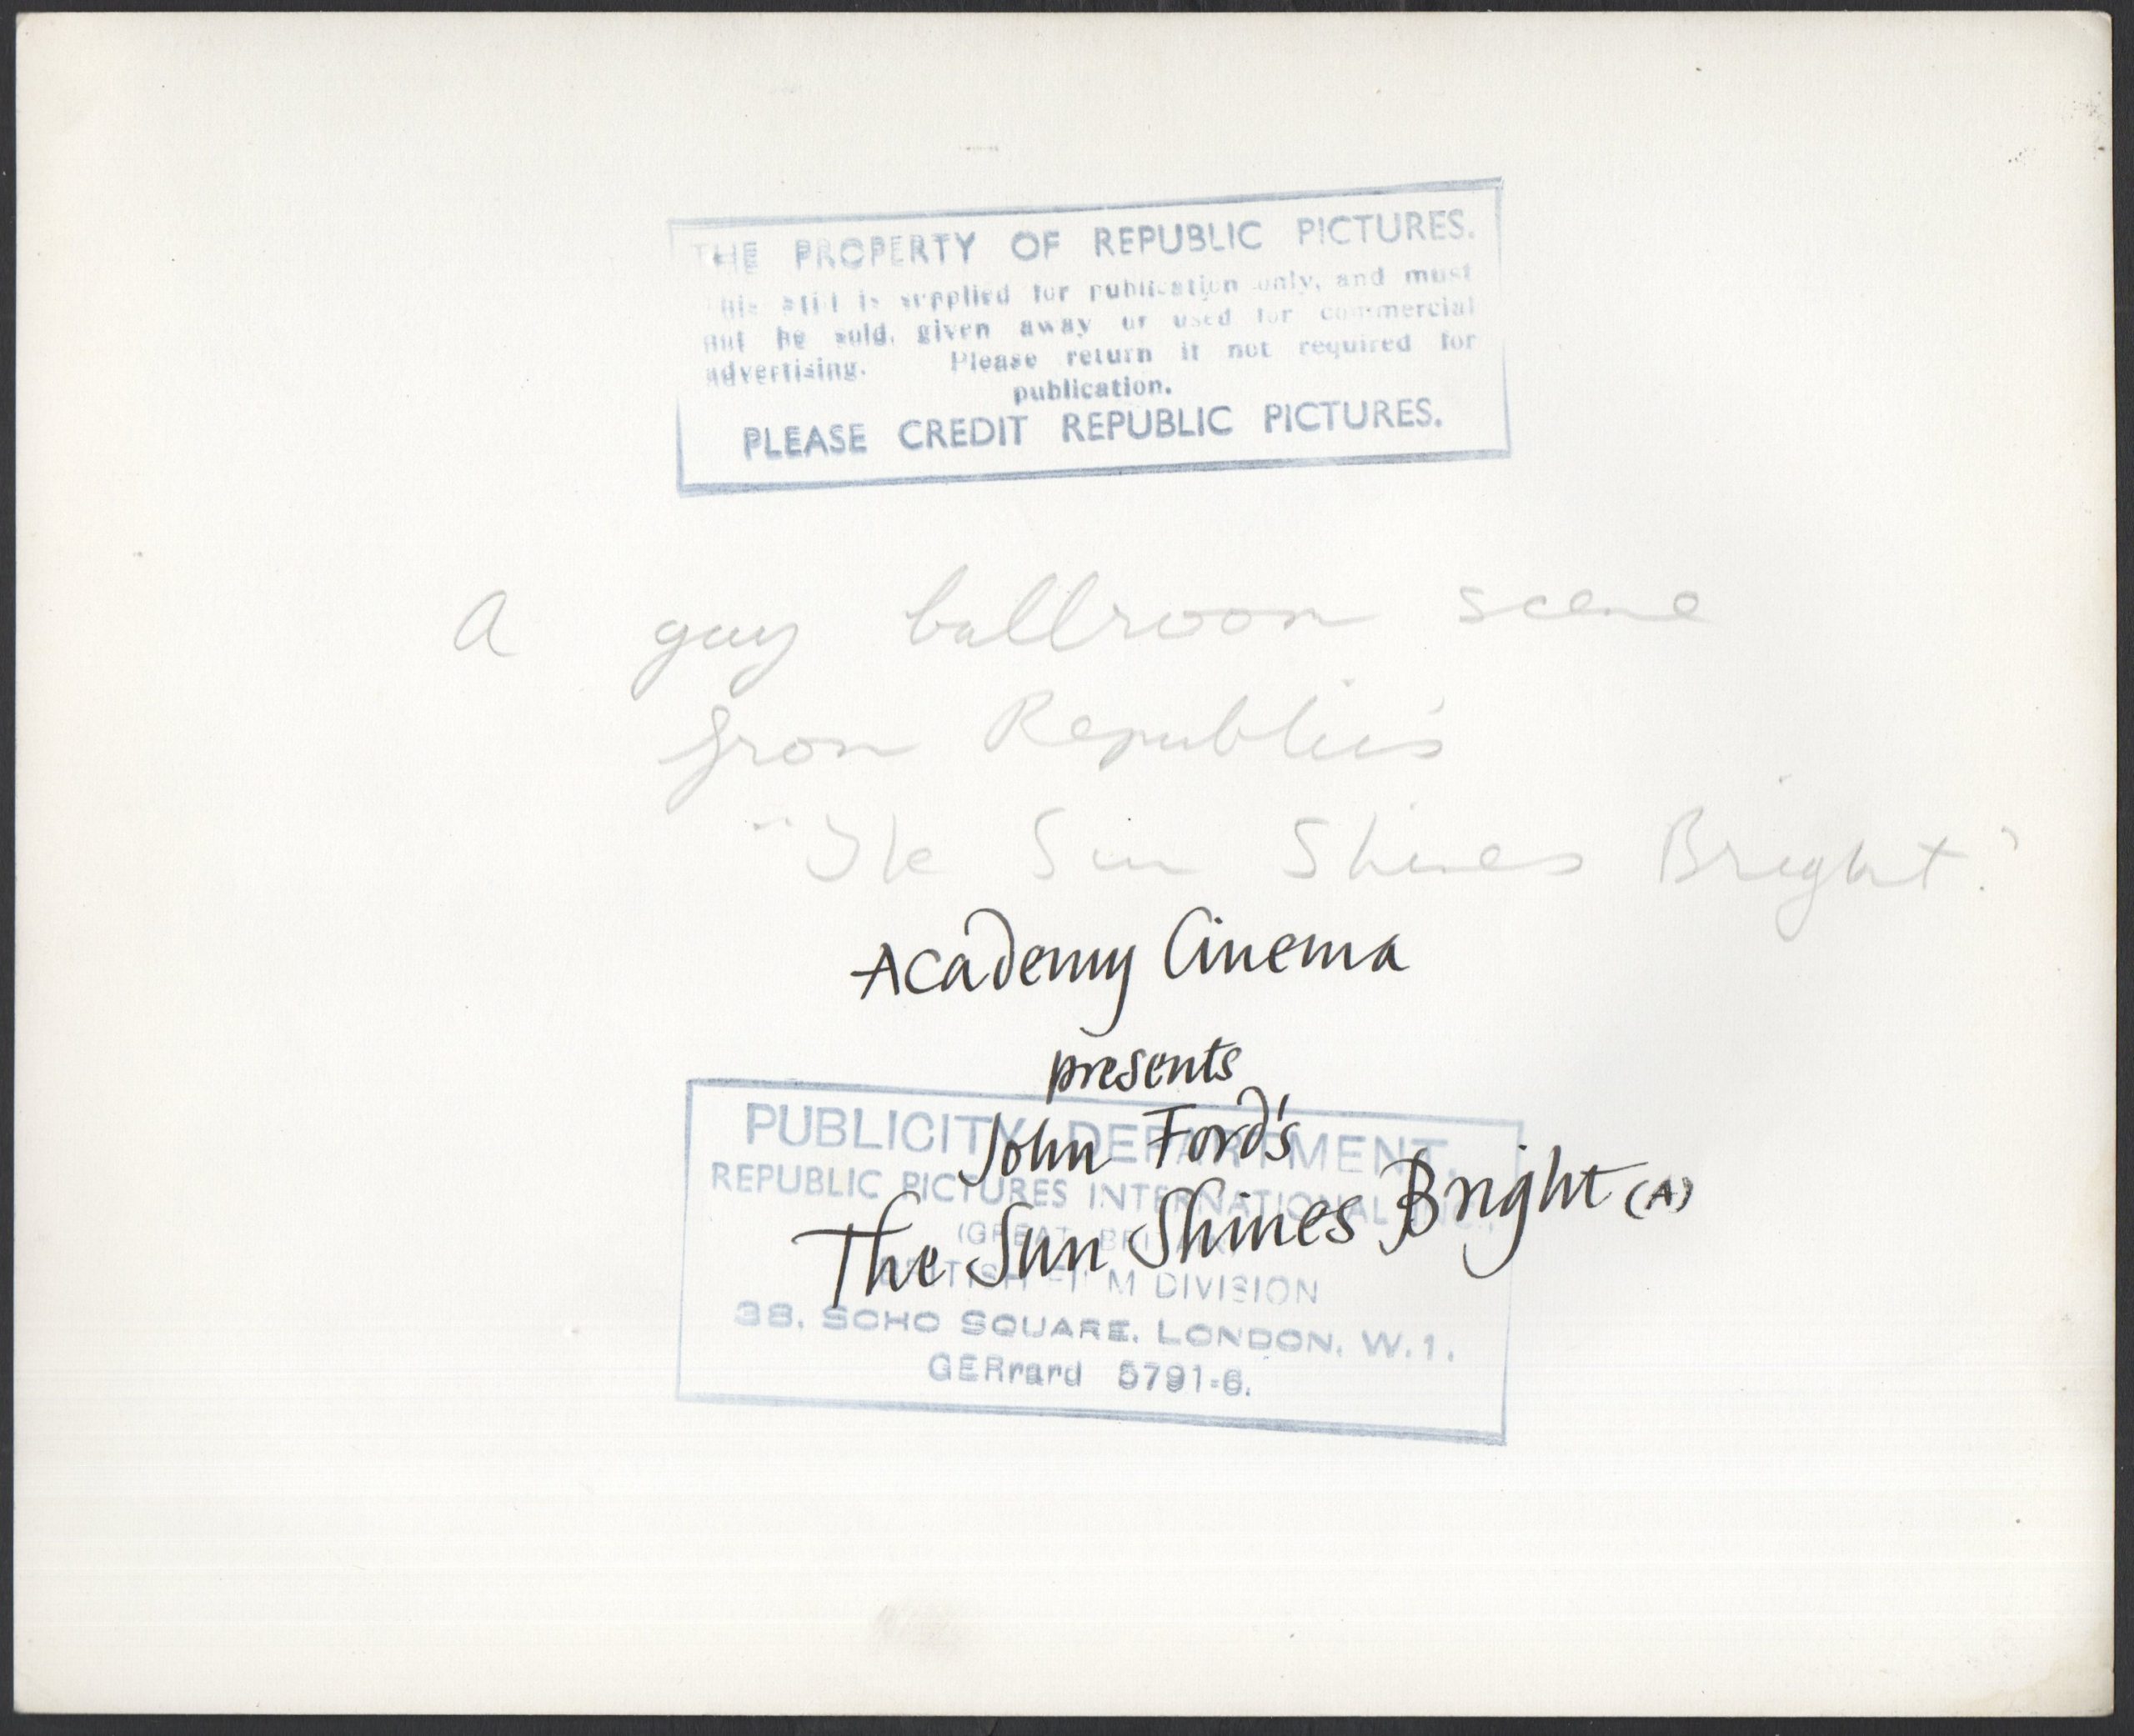 THE PROPERTY OF REPUBLIC PICTURES.
This still is supplied for publication only, and must
not be sold, given away or used for commercial
advertising. Please return if not required for
publication.
PLEASE CREDIT REPUBLIC PICTURES.
A gay ballroom scene
from Republic's
"The Sun Shines Bright."
Academy Cinema
presents
John Ford's
The Sun Shines Bright (A)
PUBLICITY DEPARTMENT,
REPUBLIC PICTURES INTERNATIONAL INC.,
(GREAT BRITAIN)
BRITISH FILM DIVISION
38, SOHO SQUARE, LONDON, W.1.
GERrard 5791-6.